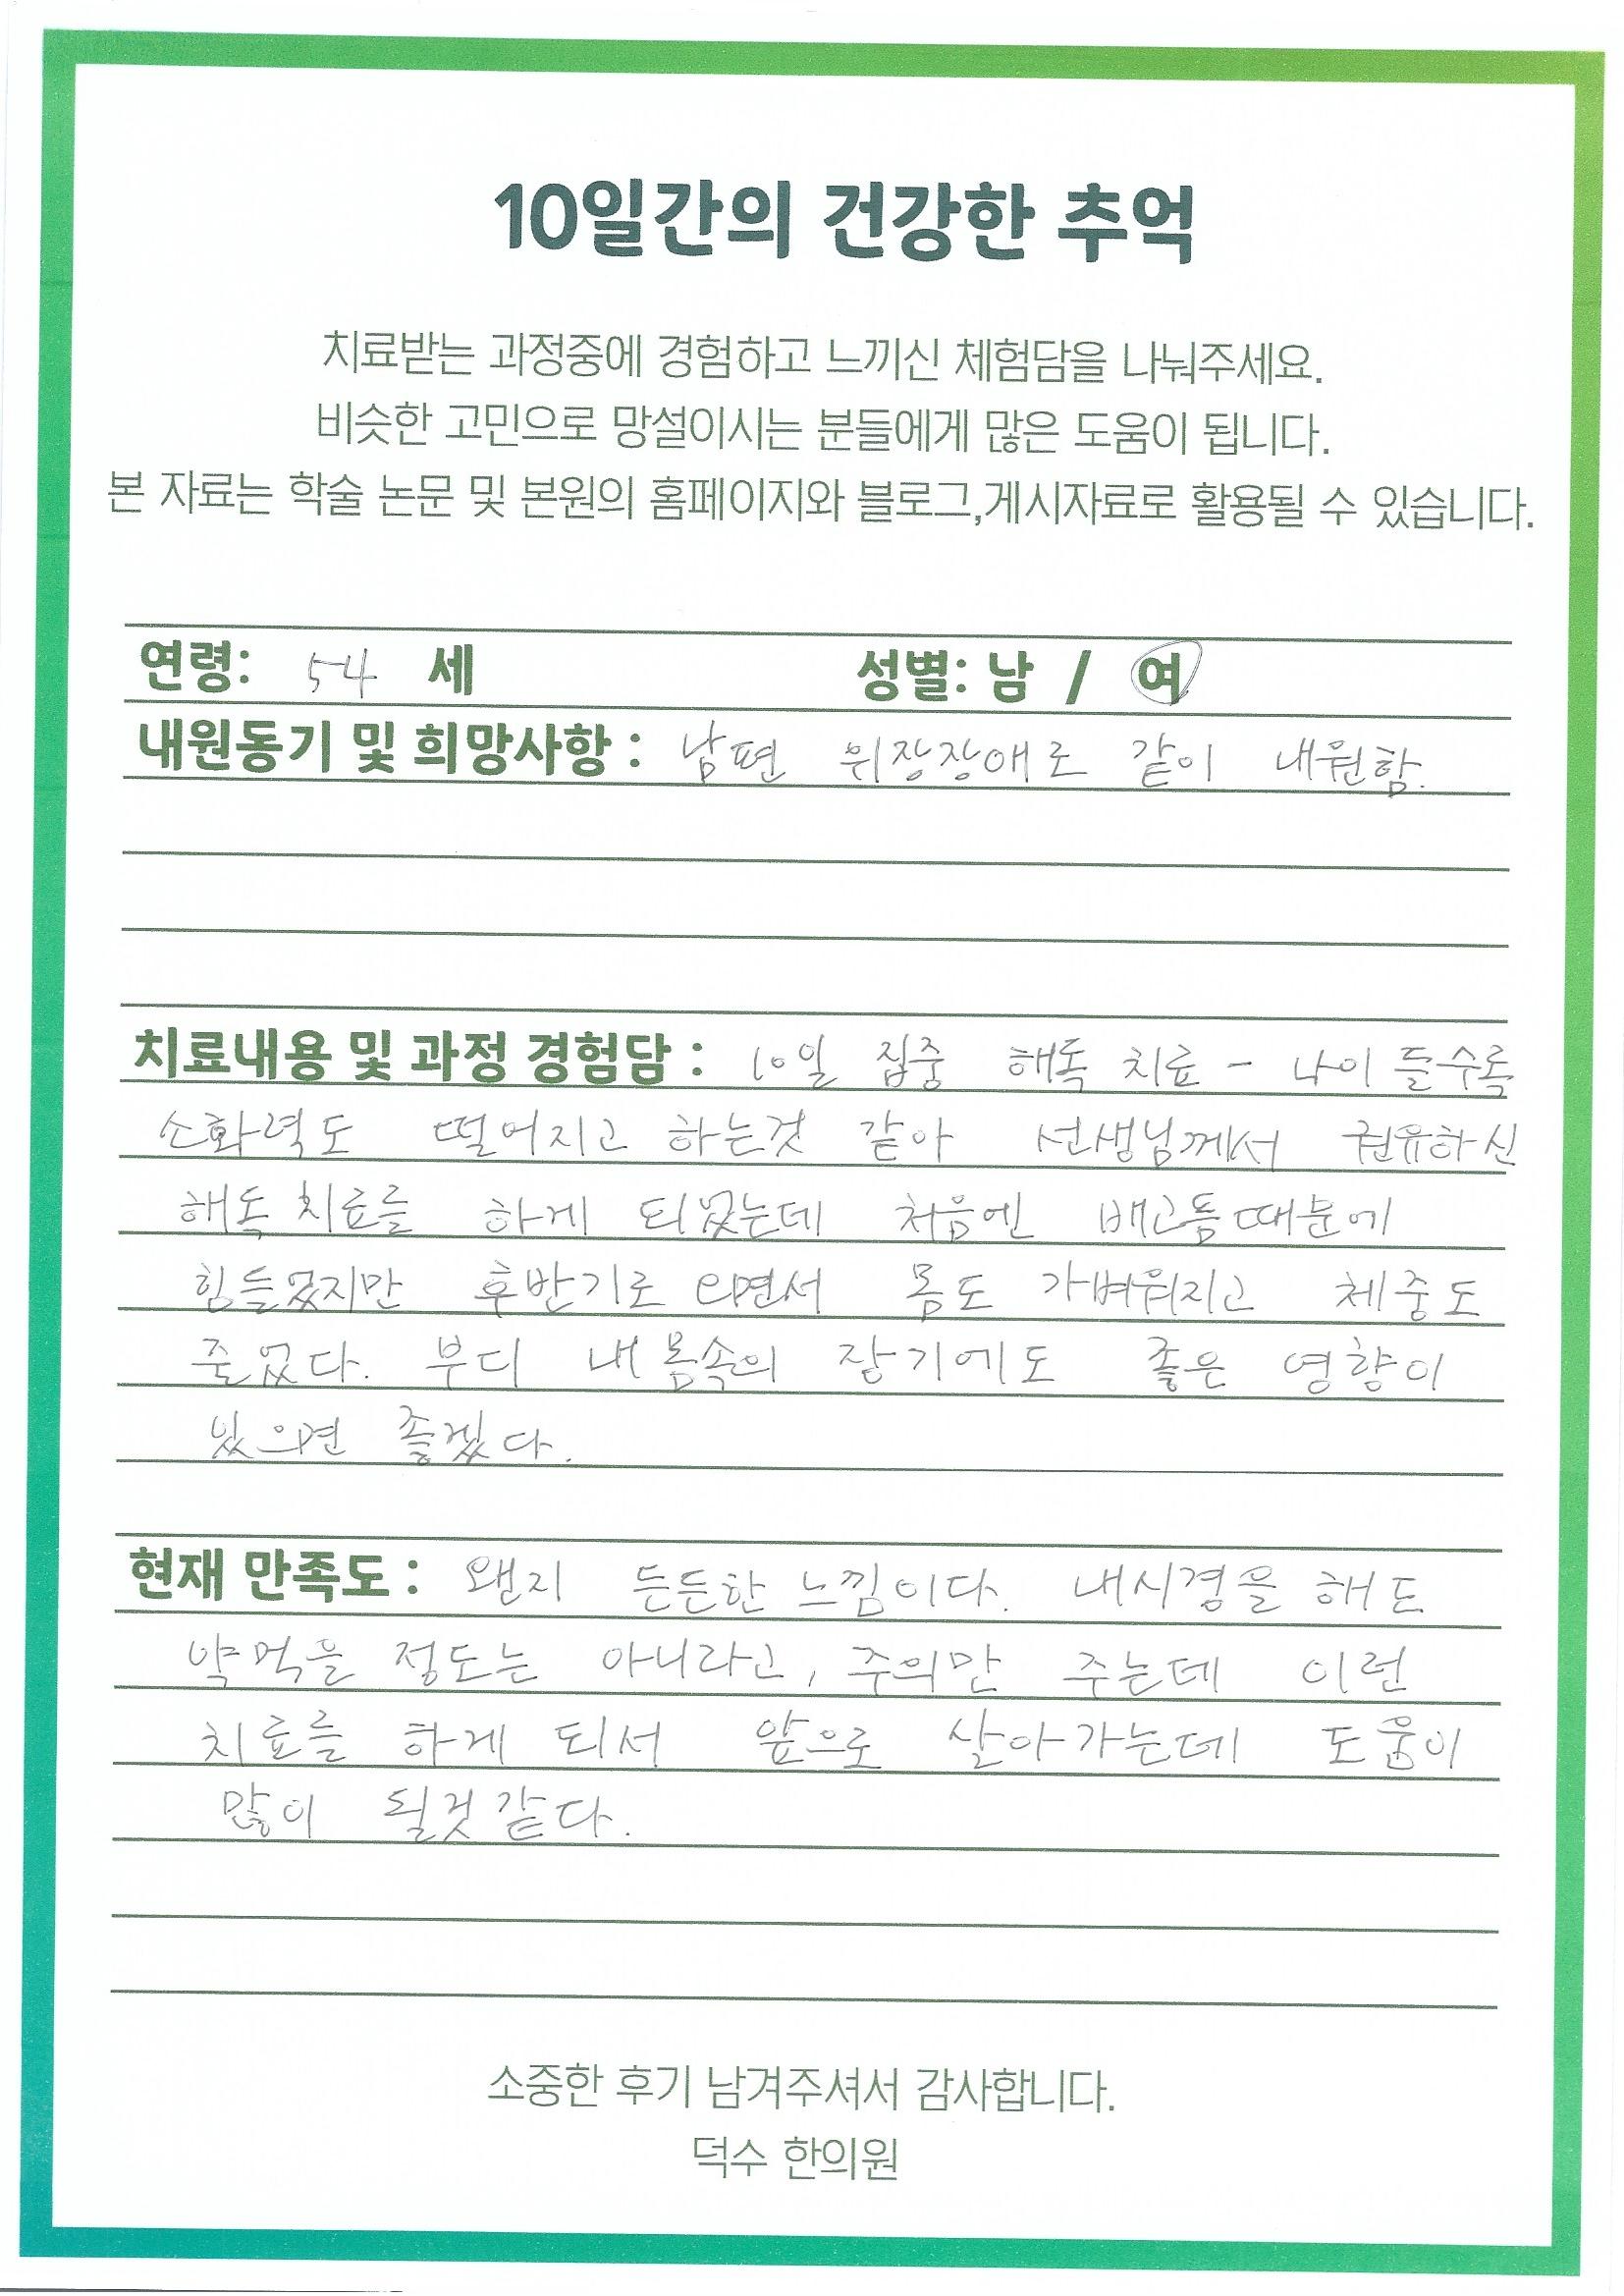 10일간의 건강한 추억
치료받는 과정중에 경험하고 느끼신 체험담을 나눠주세요.
비슷한 고민으로 망설이시는 분들에게 많은 도움이 됩니다.
본 자료는 학술 논문 및 본원의 홈페이지와 블로그,게시자료로 활용될 수 있습니다.
연령: 54 세 성별: 남 / 여
내원동기 및 희망사항 : 남편 위장장애로 같이 내원함.
치료내용 및 과정 경험담 : 10일 집중 해독 치료 - 나이 들수록
소화력도 떨어지고 하는것 같아 선생님께서 권유하신
해독 치료를 하게 되었는데 처음엔 배고픔때문에
힘들었지만 후반기로 오면서 몸도 가벼워지고 체중도
줄었다. 부디 내 몸속의 장기에도 좋은 영향이
있으면 좋겠다.
현재 만족도 : 왠지 든든한 느낌이다. 내시경을 해도
약먹을 정도는 아니라고, 주의만 주는데 이런
치료를 하게 되서 앞으로 살아가는데 도움이
많이 될것 같다.
소중한 후기 남겨주셔서 감사합니다.
덕수 한의원